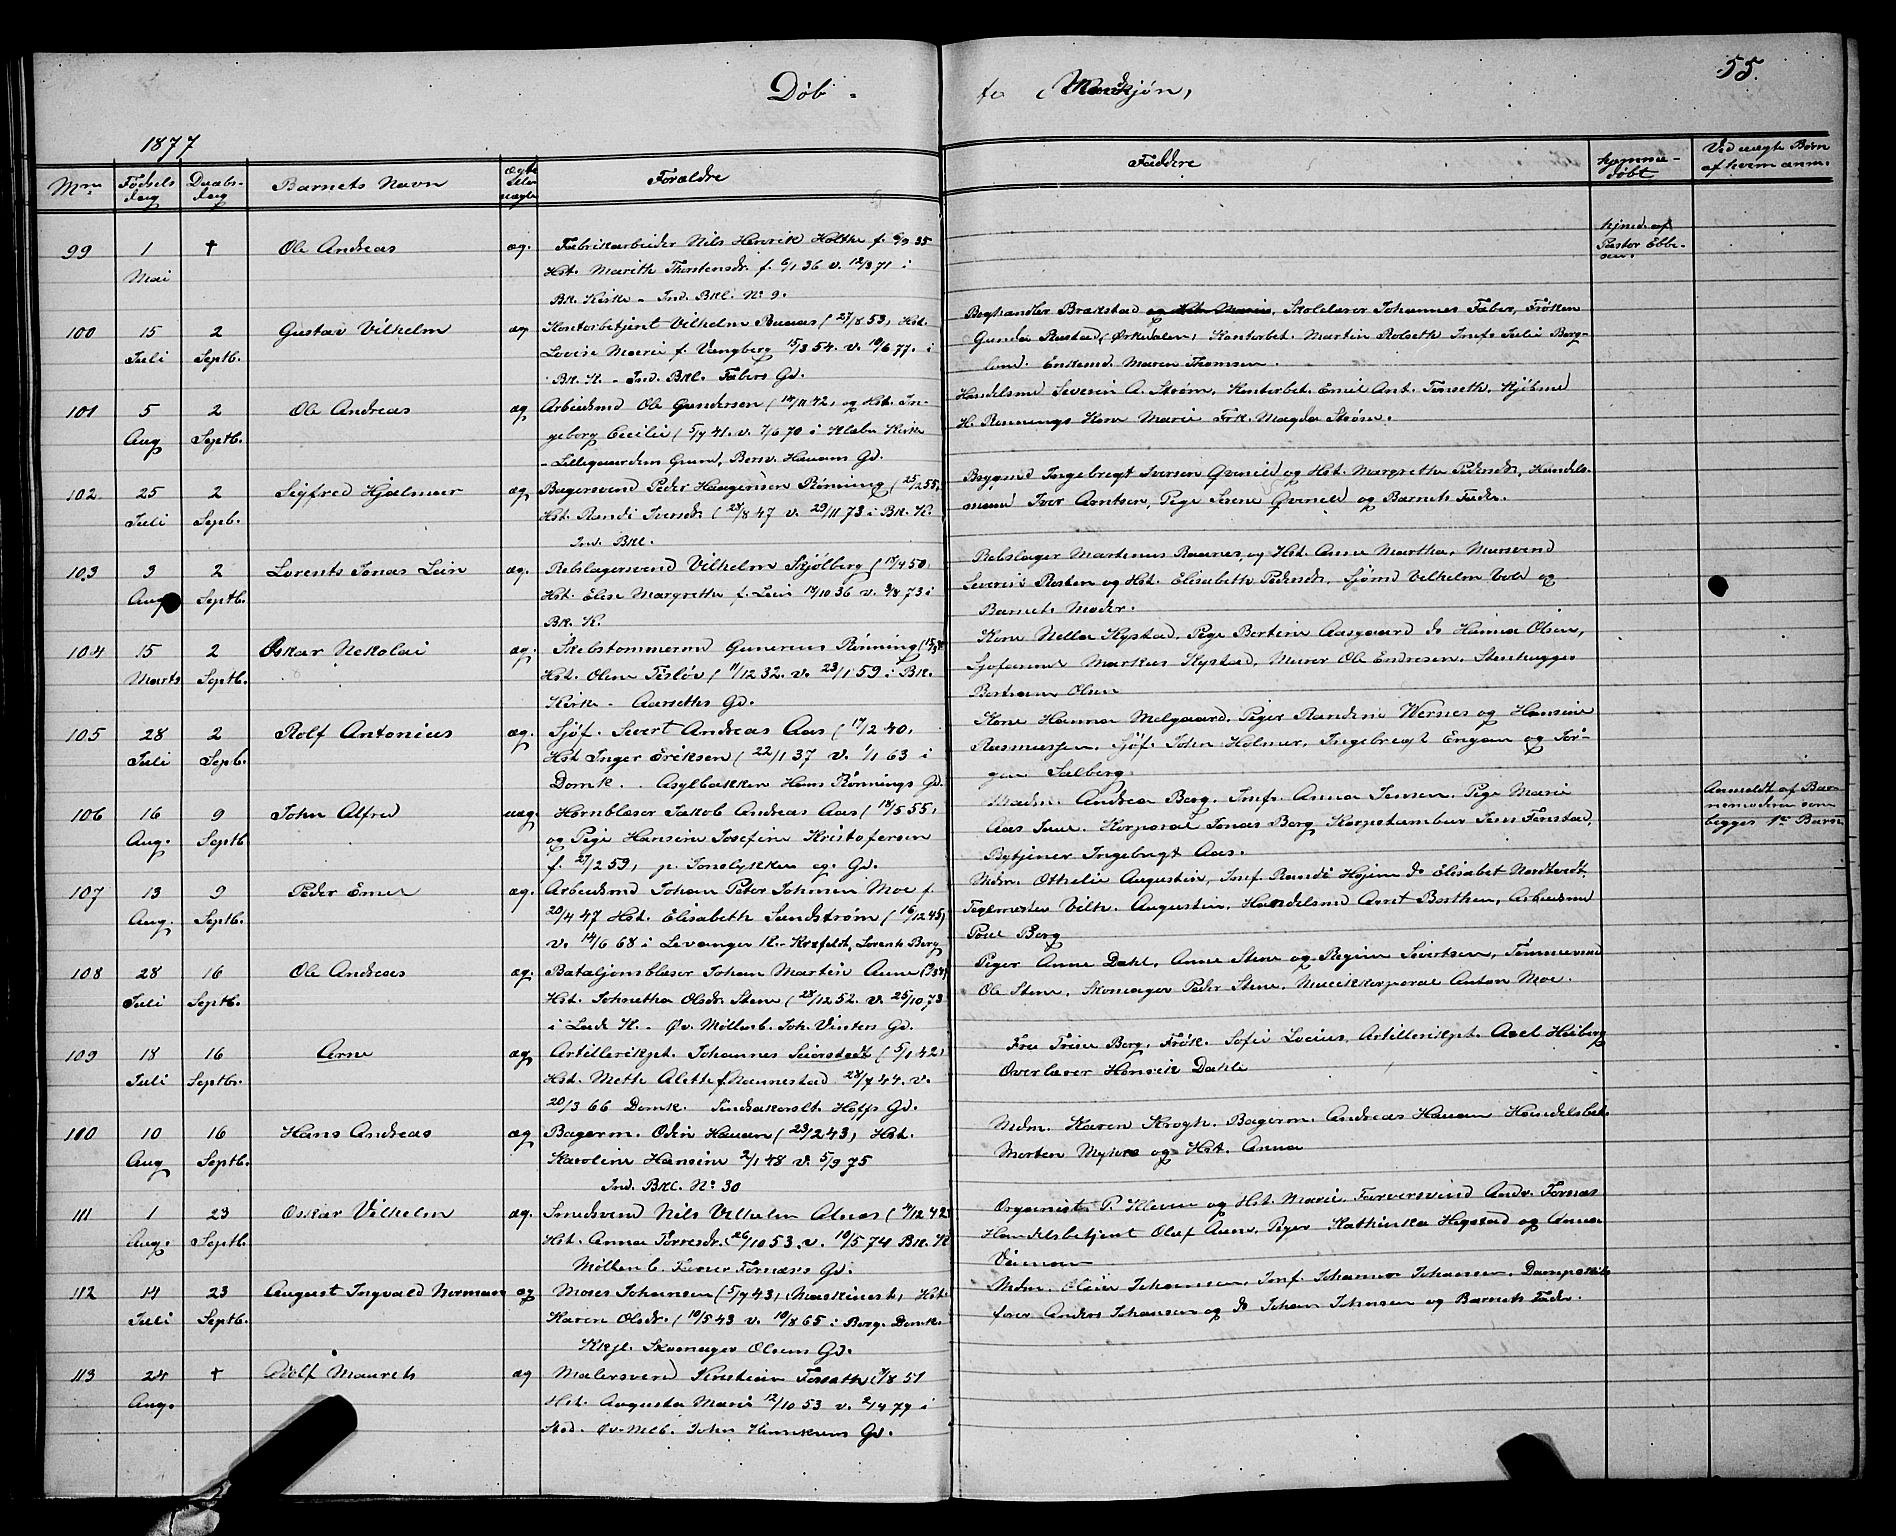 55.
Döb. af Mandkjøn,
1877
No. Fødsels Dag Daabs Dag Barnets Navn ægte eller uægte Forældre Faddere hjemmedøbt Ved uægte Børn af hvem anm.
99 1 Mai † Ole Andreas æg.
Fabrikarbeider Nils Henrik Holthe f. 6/9 35
Hst. Marith Thorstensdr. f. 6/1 36 v. 12/3 71 i
Bk. Kirke - Ind. Bkl. No 9.
hjmed. af
Pastor Ebbe-
sen.
100 15 Juli 2 Septb. Gustav Vilhelm æg
Kontorbetjent Vilhelm Buaas (27/8 53, Hst.
Lovise Marie f. Vangberg 15/3 54. v. 10/6 77. i
Bk. K - Ind. Bkl. Fabers Gd.
Boghandler Brækstad og Hst. Marie, Skolelærer Johannes Faber, Frøken
Gunda Rustad, Ørkedalen, Kontorbet. Martin Rolseth Jmf. Julie Berg-
lund. Enkemd. Maren Thomsen.
101 5 Aug 2 Septb. Ole Andreas æg
Arbeidsmd Ole Gundersen (14/11 42, og Hst. In-
geborg Cecilie (5/7 41. v. 7/6 70 i Klæbu Kirke
- Lillegaardens Grund, Berw. Hauans Gd.
Handelsmd Severin A. Strøm, Kontorbet. Emil Ant. Tinseth, Kjøbmd
H. Rønnings Kone Marie Frk. Magda Strøm.
102 25 Juli 2 Sepb. Sigfred Hjalmar æg
Bagersvend Peder Haagensen Rønning (25/2 55,
Hst. Randi Iversdr. (28/8 47 v. 29/11 73 i Bk. K.
Ind. Bkl.
Bygmd Ingebregt Iversen Qvenild og Hst. Margrethe Pedersdr, Handels-
mand Iver Arntsen, Pige Serene Qvenild og Barnets Fader.
103 3 Aug 2 Septb. Lorents Jonas Lein æg.
Rebslagersvend Vilhelm Skjølberg (17/4 50,
Hst. Elise Margrethe f. Lein 14/10 36 v. 3/8 73 i
Bk. K.
Rebslager Martinus Raanes, og Hst. Anne Martha, Mursvend
Severin Rosten og Hst. Elisabeth Pedersdr, Sjømd Vilhelm Vold og
Barnets Moder.
104 15 Marts 2 Septb. Oskar Nekolai æg.
Skibstømmermd Gunerius Rønning
Hst. Oline Tesløv (11/12 32. v. 23/1 59 i Bk.
Kirke - Aarseths Gd.
Kone Nella Kystad, Pige Bertine Aasgaard do Hanna Olsen,
Sjøfarend Markus Kystad, Murer Ole Endresen, Stenhugger
Bertram Olsen
105 28 Juli 2 Sepb. Rolf Antonius æg.
Sjöf. Sivert Andreas Aas (17/2 40,
Hst Inger Eriksen (22/1 37 v. 1/1 63 i
Domk. . Asylbakken Hans Rønnings Gd.
Kone Hanna Melgaard, Piger Randine Wernes og Hansine
Rasmussen, Sjöf. John Holmer, Ingebregt Engan og Jör-
gen Salberg.
106 16 Aug. 9 Septb John Alfred uæg.
Hornblæser Jakob Andreas Aas (18/5 55,
og Pige Hansine Josefine Kristofersen
f. 27/2 59, p. Jonslykken eg. Gd.
Madm. Andrea Berg, Jmfr. Anna Jensen, Pige Marie
Aas Iene, Korporal Jonas Berg, Korpstambur Jens Fenstad,
Bytjener Ingebrigt Aas.
Anmeldt af Bar-
nemoderen som
begges 1ste Barn
107 13 Aug. 9 Septb. Peder Emil æg.
Arbeidsmd Johan Peter Johnsen Moe f
20/4 47 Hst. Elisabeth Sundstrøm (16/12 45)
v. 14/6 68 i Levanger K. - Krefeldt, Lorents Berg
Mdm. Othelie Augustin, Jmf. Randi Hojem do Elisabet Nordtvedt,
Teglmester Vilh. Augustin, Handelsmd Arnt Barthen, Arbeidsmd
Poul Berg
108 28 Juli 16 Septb. Ole Andreas æg.
Bataljonsblæser Johan Martin Aune
Hst. Johnetha Olsdr. Stene (28/12 52. v. 25/10 73
i Lade K. - Øv. Möllenb. Joh. Vintens Gd.
Piger Anne Dahl, Anne Stene og Regine Sivertsen, Tømmermd
Ole Stene, Skomager Peder Stene, Musikkorporal Anton Moe.
109 18 Juli 16 Septb. Arne æg
Artillerikpt. Johannes Seierstedt (5/1 42,
Hst. Mette Alette f. Nannestad 28/7 44. v.
20/3 66 Domk. Sindsakorslt. Hoffs Gd.
Fru Trine Berg, Frøk. Sofie Locius, Artillerikpt. Axel Heiberg
Overlærer Henrik Dahl
110 10 Aug 16 Septb. Hans Andreas æg
Bagerm. Odin Hauan (23/2 43, Hst.
Karoline Hansine 2/1 48 v. 5/9 75
Ind. Bkl. No 30
Mdm. Karen Krogh, Bagerm. Andreas Hauan Handelsbet.
Morten Myhre og Hst. Anna
111 1 Aug. 23 Septb. Oskar Vilhelm æg.
Smedsvend Nils Vilhelm Alnæs (4/12 42,
Hst. Anna Torresdr. (26/10 53. v. 10/5 74 Bk. K
Møllenb. Farver Fornæs Gd.
Organist P. Kleven og Hst. Marie, Farversvend Andr. Fornæs
Handelsbetjent Olaf Aune, Piger Kathinka Hegstad og Anna
Veiman
112 14 Juli 23 Septb. August Ingvald Norman æg
Moses Johansen (5/7 43, Maskinest, Hst.
Karen Olsdr. (10/5 43 v. 10/8 65 i Berg. Domk.
Kkgt. Skomager Olsens Gd.
Mdm. Oline Johansen, Jmf. Johanna Johansen, Dampskibs
fører Anders Johansen og do Johan Johnsen og Barnets Fader.
113 24 Aug. † Adolf Maurits æg
Malersvend Kristian Forsøth (3/8 51
Hst. Augusta Marie 12/10 53 v. 2/4 77 i
Stod. Øv. Mlb. John Henriksens Gd.